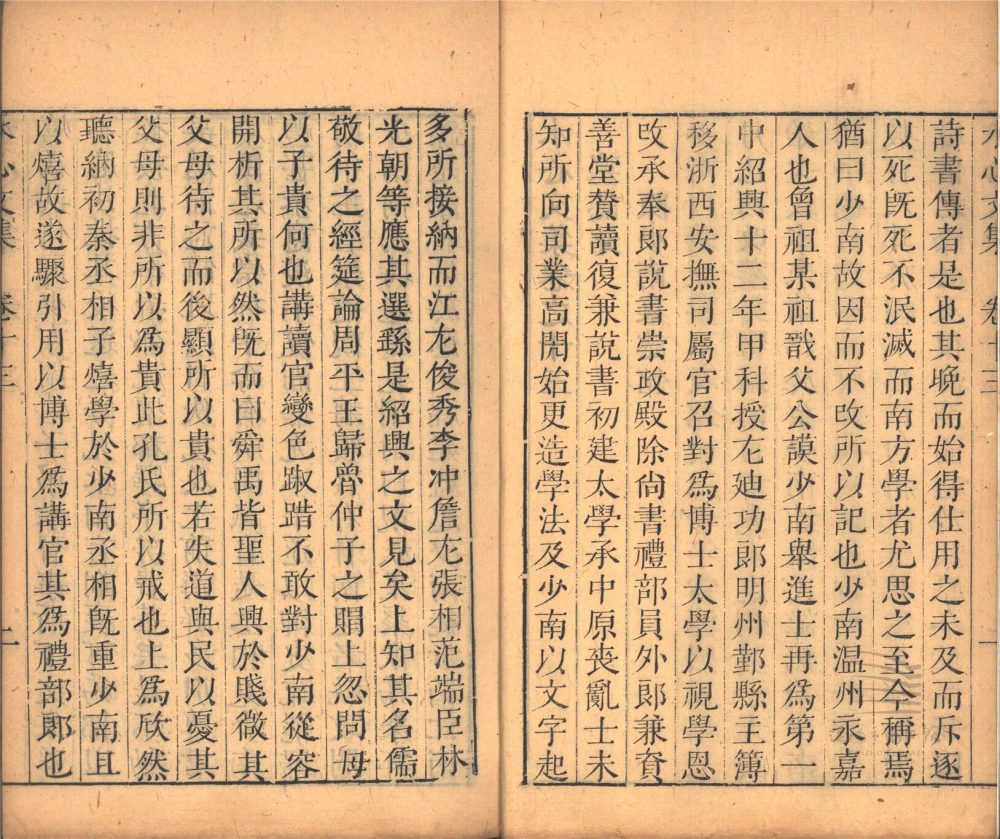 水心文集 卷十三 一
詩書傳者是也其晚而始得仕用之未及而斥逐
以死旣死不泯滅而南方學者尤思之至今稱焉
猶曰少南故因而不改所以記也少南温州永嘉
人也曾祖某祖戩父公謨少南舉進士再爲第一
中紹興十二年甲科授左廸功郎明州鄞縣主簿
移浙西安撫司屬官召對爲博士太學以視學恩
改承奉郎說書崇政殿除尙書禮部員外郎兼資
善堂贊讀復兼說書初建太學承中原喪亂士未
知所向司業高閌始更造學法及少南以文字起
多所接納而江左俊秀李冲詹左張相范端臣林
光朝等應其選繇是紹興之文見矣上知其名儒
敬待之經筵論周平王歸魯仲子之賵上忽問母
以子貴何也講讀官變色踧踖不敢對少南從容
開析其所以然旣而曰舜禹皆聖人興於賤微其
父母待之而後顯所以貴也若失道與民以憂其
父母則非所以爲貴此孔氏所以戒也上爲欣然
聽納初秦丞相子熺學於少南丞相旣重少南且
以熺故遂驟引用以博士爲講官其爲禮部郎也
水心文集 卷十三 二